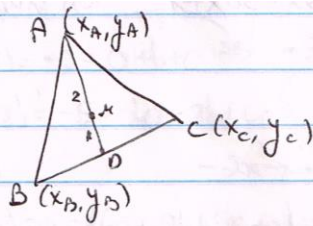 A (x_A, y_A)
2
M
1
D
C (x_C, y_C)
B (x_B, y_B)